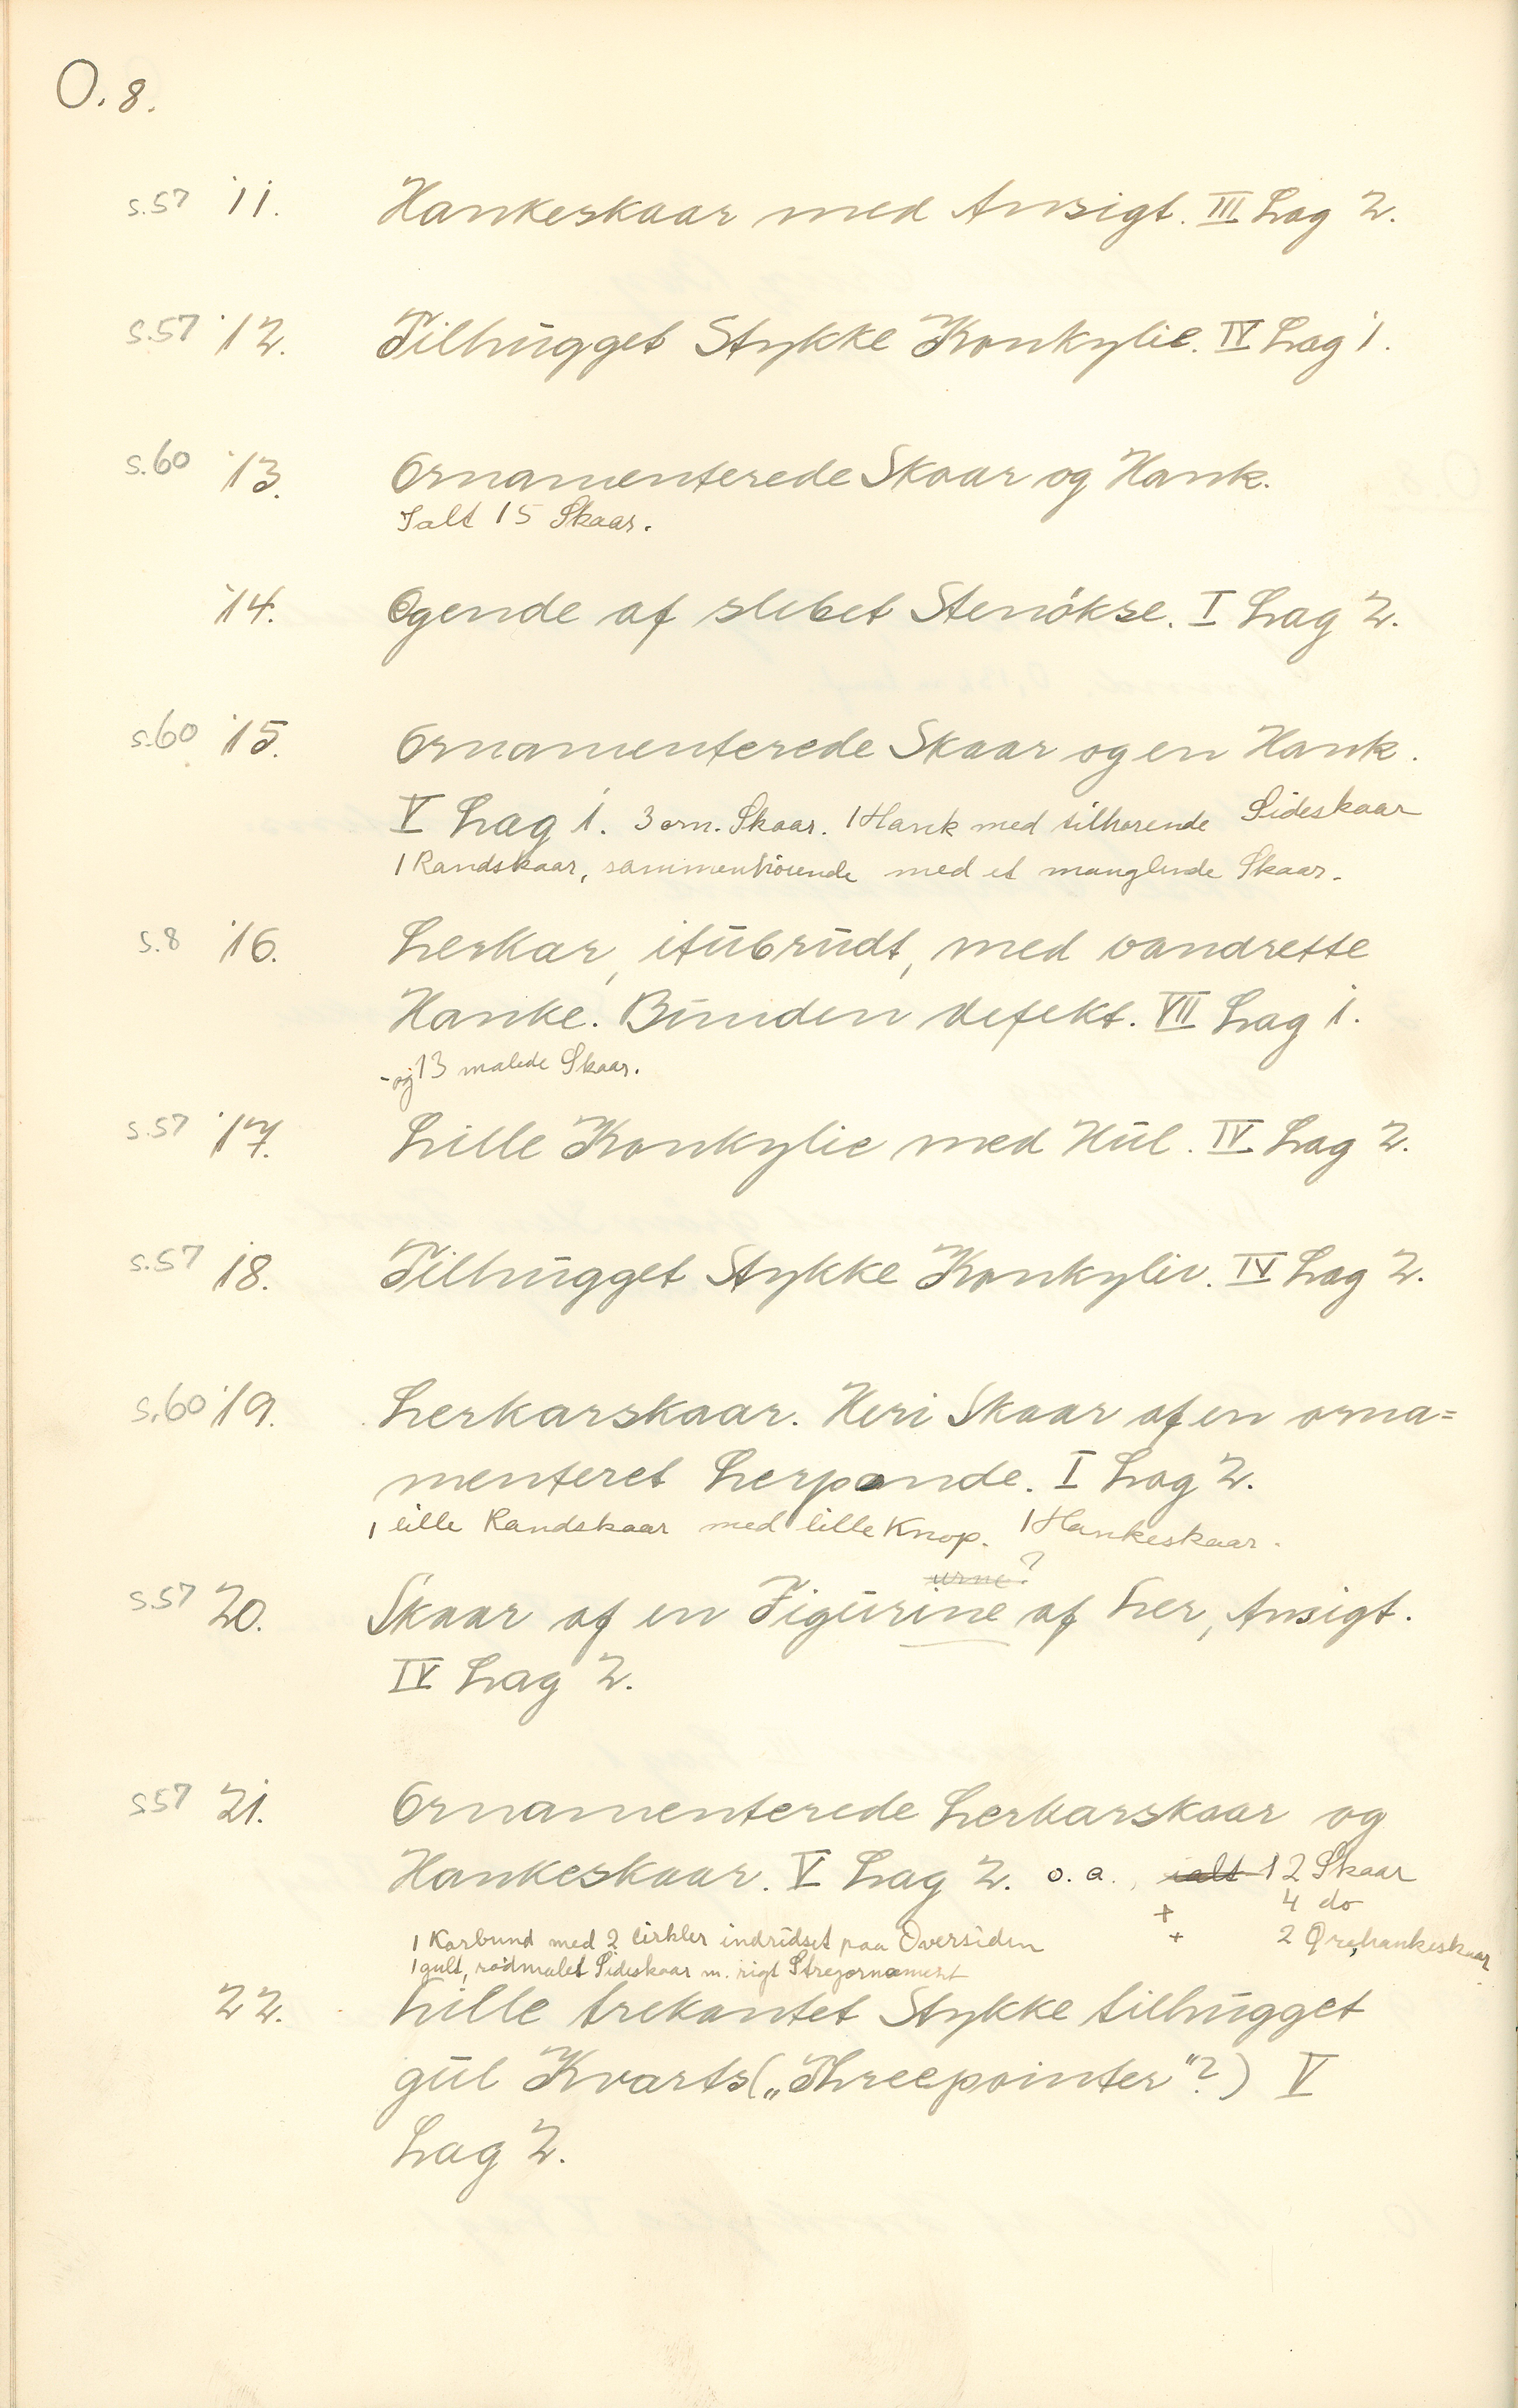 O. 8.
s.57 11. Hankeskaar med Ansigt. III Lag 2.
s.57 12. Tilhugget Stykke Konkylie. IV Lag 1.
s.60 13. Ornamenterede Skaar og Hank.
Ialt 15 Skaar.
14. Egende af slebet Stenökse. I Lag 2.
s.60 15. Ornamenterede Skaar og en Hank.
V Lag 1. 3 orn. Skaar. 1 Hank med tilhørende Sideskaar
1 Randskaar, sammenhörende med et manglende Skaar.
s.8 16. Lerkar, itubrudt, med vandrette
Hanke. Bunden defekt. VII Lag 1.
- og 13 malede Skaar.
s.57 17. Lille Konkylie med Hul. IV Lag 2.
s.57 18. Tilhugget Stykke Konkylie. IV Lag 2.
s.60 19. Lerkarskaar. Heri Skaar af en orna=
menteret Lerpande. I Lag 2.
1 lille Randskaar med lille Knop. 1 Hankeskaar.
urne?
s.57 20. Skaar af en Figurine af Ler, Ansigt.
IV Lag 2.
s57 21. Ornamenterede Lerkarskaar og
Hankeskaar. V Lag 2. o. a., ialt 12 Skaar
+ 4 do
1 Karbund med 2 Cirkler indridset paa Oversiden + 2
1 gult, rødmalet Sideskaar m. rigt Stregornament
22. Lille trekantet Stykke tilhugget
gul Kvarts („Threepointer"?) V
Lag 2.